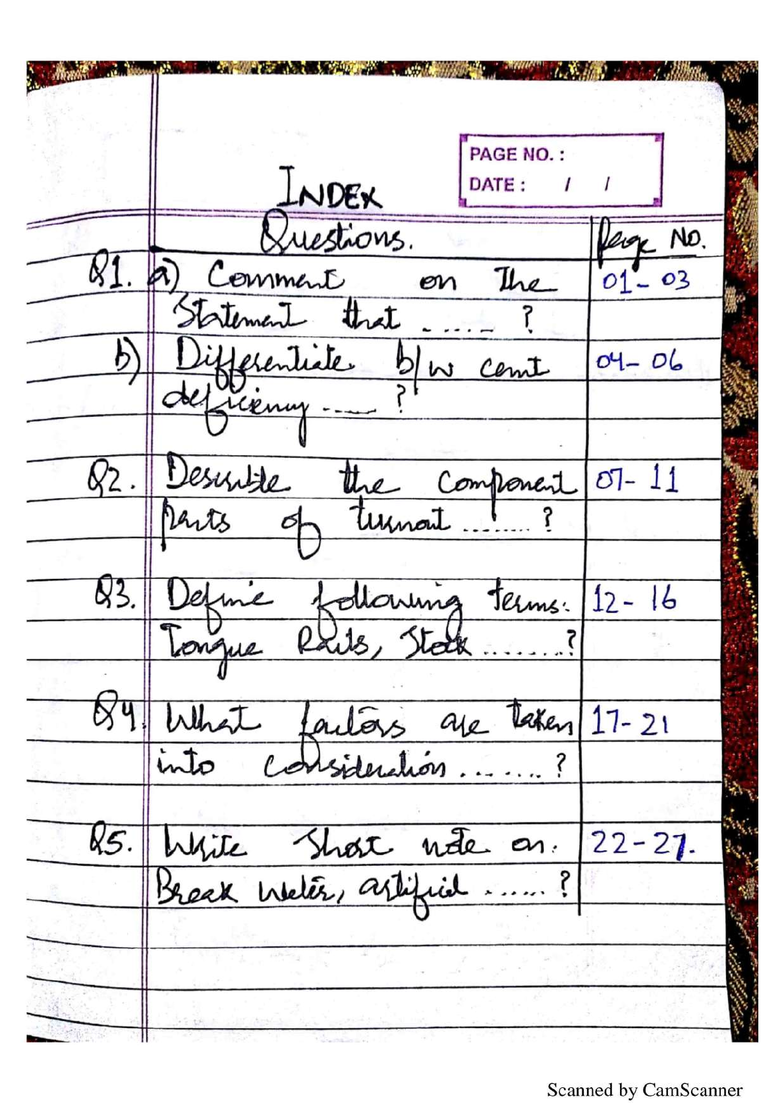 PAGE NO. :
DATE : / /
INDEX
Questions. Page No.
Q1. a) Comment on The 01-03
Statement that ...... ?
b) Differentiate b/w cant 04-06
deficiency ..... ?
Q2. Describle the component 07-11
parts of turnout ........ ?
Q3. Define following terms: 12-16
Tongue Rails, Stock ........ ?
Q4. What factors are taken 17-21
into consideration ........ ?
Q5. Write Short note on: 22-27.
Break Water, artificial ...... ?
Scanned by CamScanner